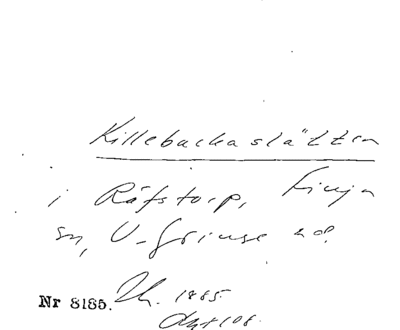 Killebackaslätten
i Räfstorp, Finja
sn, V. Göinge hd.
Nr 8185. 1885.